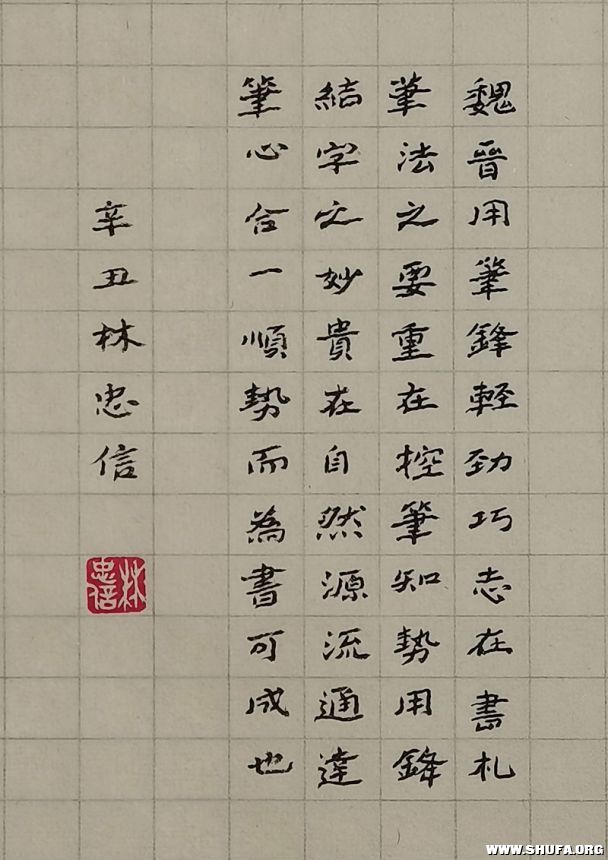 魏晉用筆鋒輕勁巧志在書札
筆法之要重在控筆知勢用鋒
結字之妙貴在自然源流通達
筆心合一順勢而為書可成也
辛丑林忠信
林忠信
WWW.SHUFA.ORG